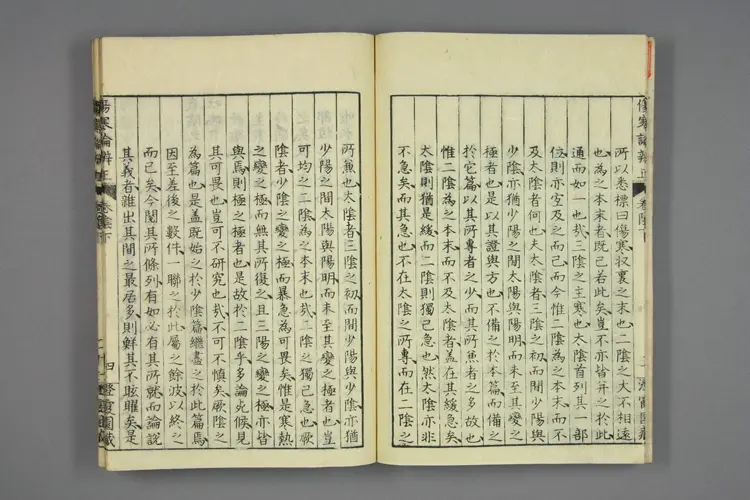 所以悉標曰傷寒以裏之末也二陰之大不相遠
也為之本末者既已若此矣豈不亦皆并之於此
通而如一也哉三陰之主寒也太陰首列其一部
位則亦宜及之而已而今惟二陰為之本末而不
及太陰者何也夫太陰者三陰之初而間少陽與
少陰亦猶少陽之間太陽與陽明而未至其變之
極者也是以其證與方也不備之於本篇而備之
於它篇以其所專者之少而其所兼者之多故也
惟二陰為之本末而不及太陰者蓋在其緩急矣
太陰則猶是緩而二陰則獨已急也然太陰亦非
不急矣而其急也不在太陰之所專而在二陰之
傷寒論辨正 卷陰下
所兼也太陰者三陰之初而間少陽與少陰亦猶
少陽之間太陽與陽明而未至其變之極者也豈
可均之二陰為之本末也哉三陰之獨已急也厥
陰者少陰之變之極而暴急為可畏矣惟是寒熱
之變之極而無其所復之且三陽之變之極亦皆
與焉則極之極者也是故於二陰乎多論死候見
其可畏也豈可不研究也哉不可不慎矣厥陰之
為篇也是蓋既始之於少陰篇繼盡之於此篇焉
因至差後之數件一聯之於此屬之餘波以終之
而已矣今閱其所條列有如必有其所就而論說
其義者雜出其間之最居多則鮮其不眩矅矣是
傷寒論辨正 卷陰下
四